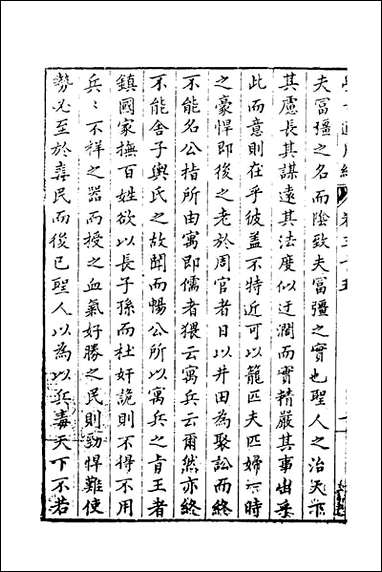 夫冨彊之名而陰致夫冨彊之實也聖人之治天下
其慮長其謀遠其法度似迂濶而實精嚴其事出乎
此而意則在乎彼盖不特近可以籠匹夫匹婦一時
之豪悍即後之老於周官者日以井田為聚訟而終
不能名公指所由寓即儒者猥云寓兵云爾然亦終
不能舍子輿氏之故聞而暢公所以寓兵之肯王者
鎮國家撫百姓欲以長子孫而杜奸詭則不得不用
兵〻不祥之器而授之血氣好勝之民則勁悍難使
勢必至於毒民而後已聖人以為以兵毒天下不若